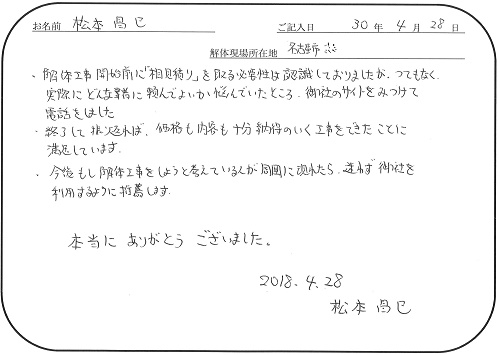 お名前 松本 昌巳 ご記入日 30年 4月 28日
解体現場所在地 名古屋市
・解体工事開始前に「相見積り」を取る必要性は認識しておりましたが、つてもなく、
実際にどんな業者に頼んでよいか悩んでいたところ、御社のサイトをみつけて
電話をしました
・終了して振返れば、価格も内容も十分納得のいく工事をできたことに
満足しています。
・今後もし解体工事をしようと考えている人が周囲に現れたら、迷わず御社を
利用するように推薦します。
本当に ありがとう ございました。
2018.4.28
松本 昌巳